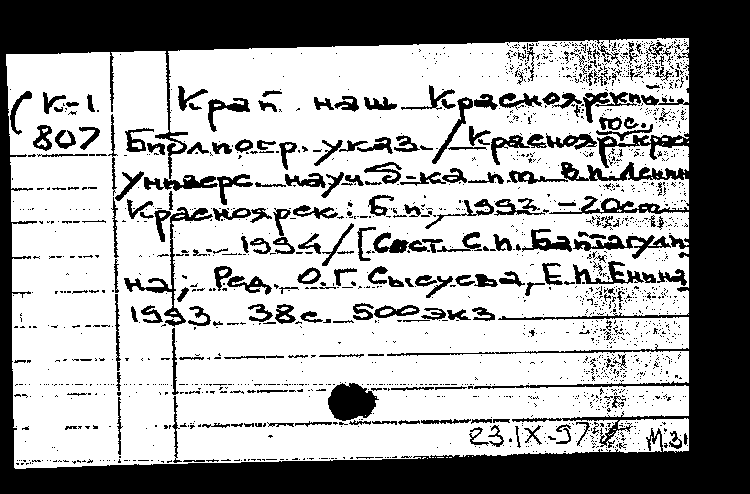 К-1 Край наш Красноярский...
807 Библиогр. указ. / Краснояр. гос. краев.
Универс. науч. б-ка им. В.И. Ленин
Красноярск: Б.и., 1993. - 20см
... 1994 / [Сост. С.П. Байтагули-
на; Ред. О.Г. Сысуева, Е.И. Енина
1993. 38с. 500экз.
23.IX.97 М.31